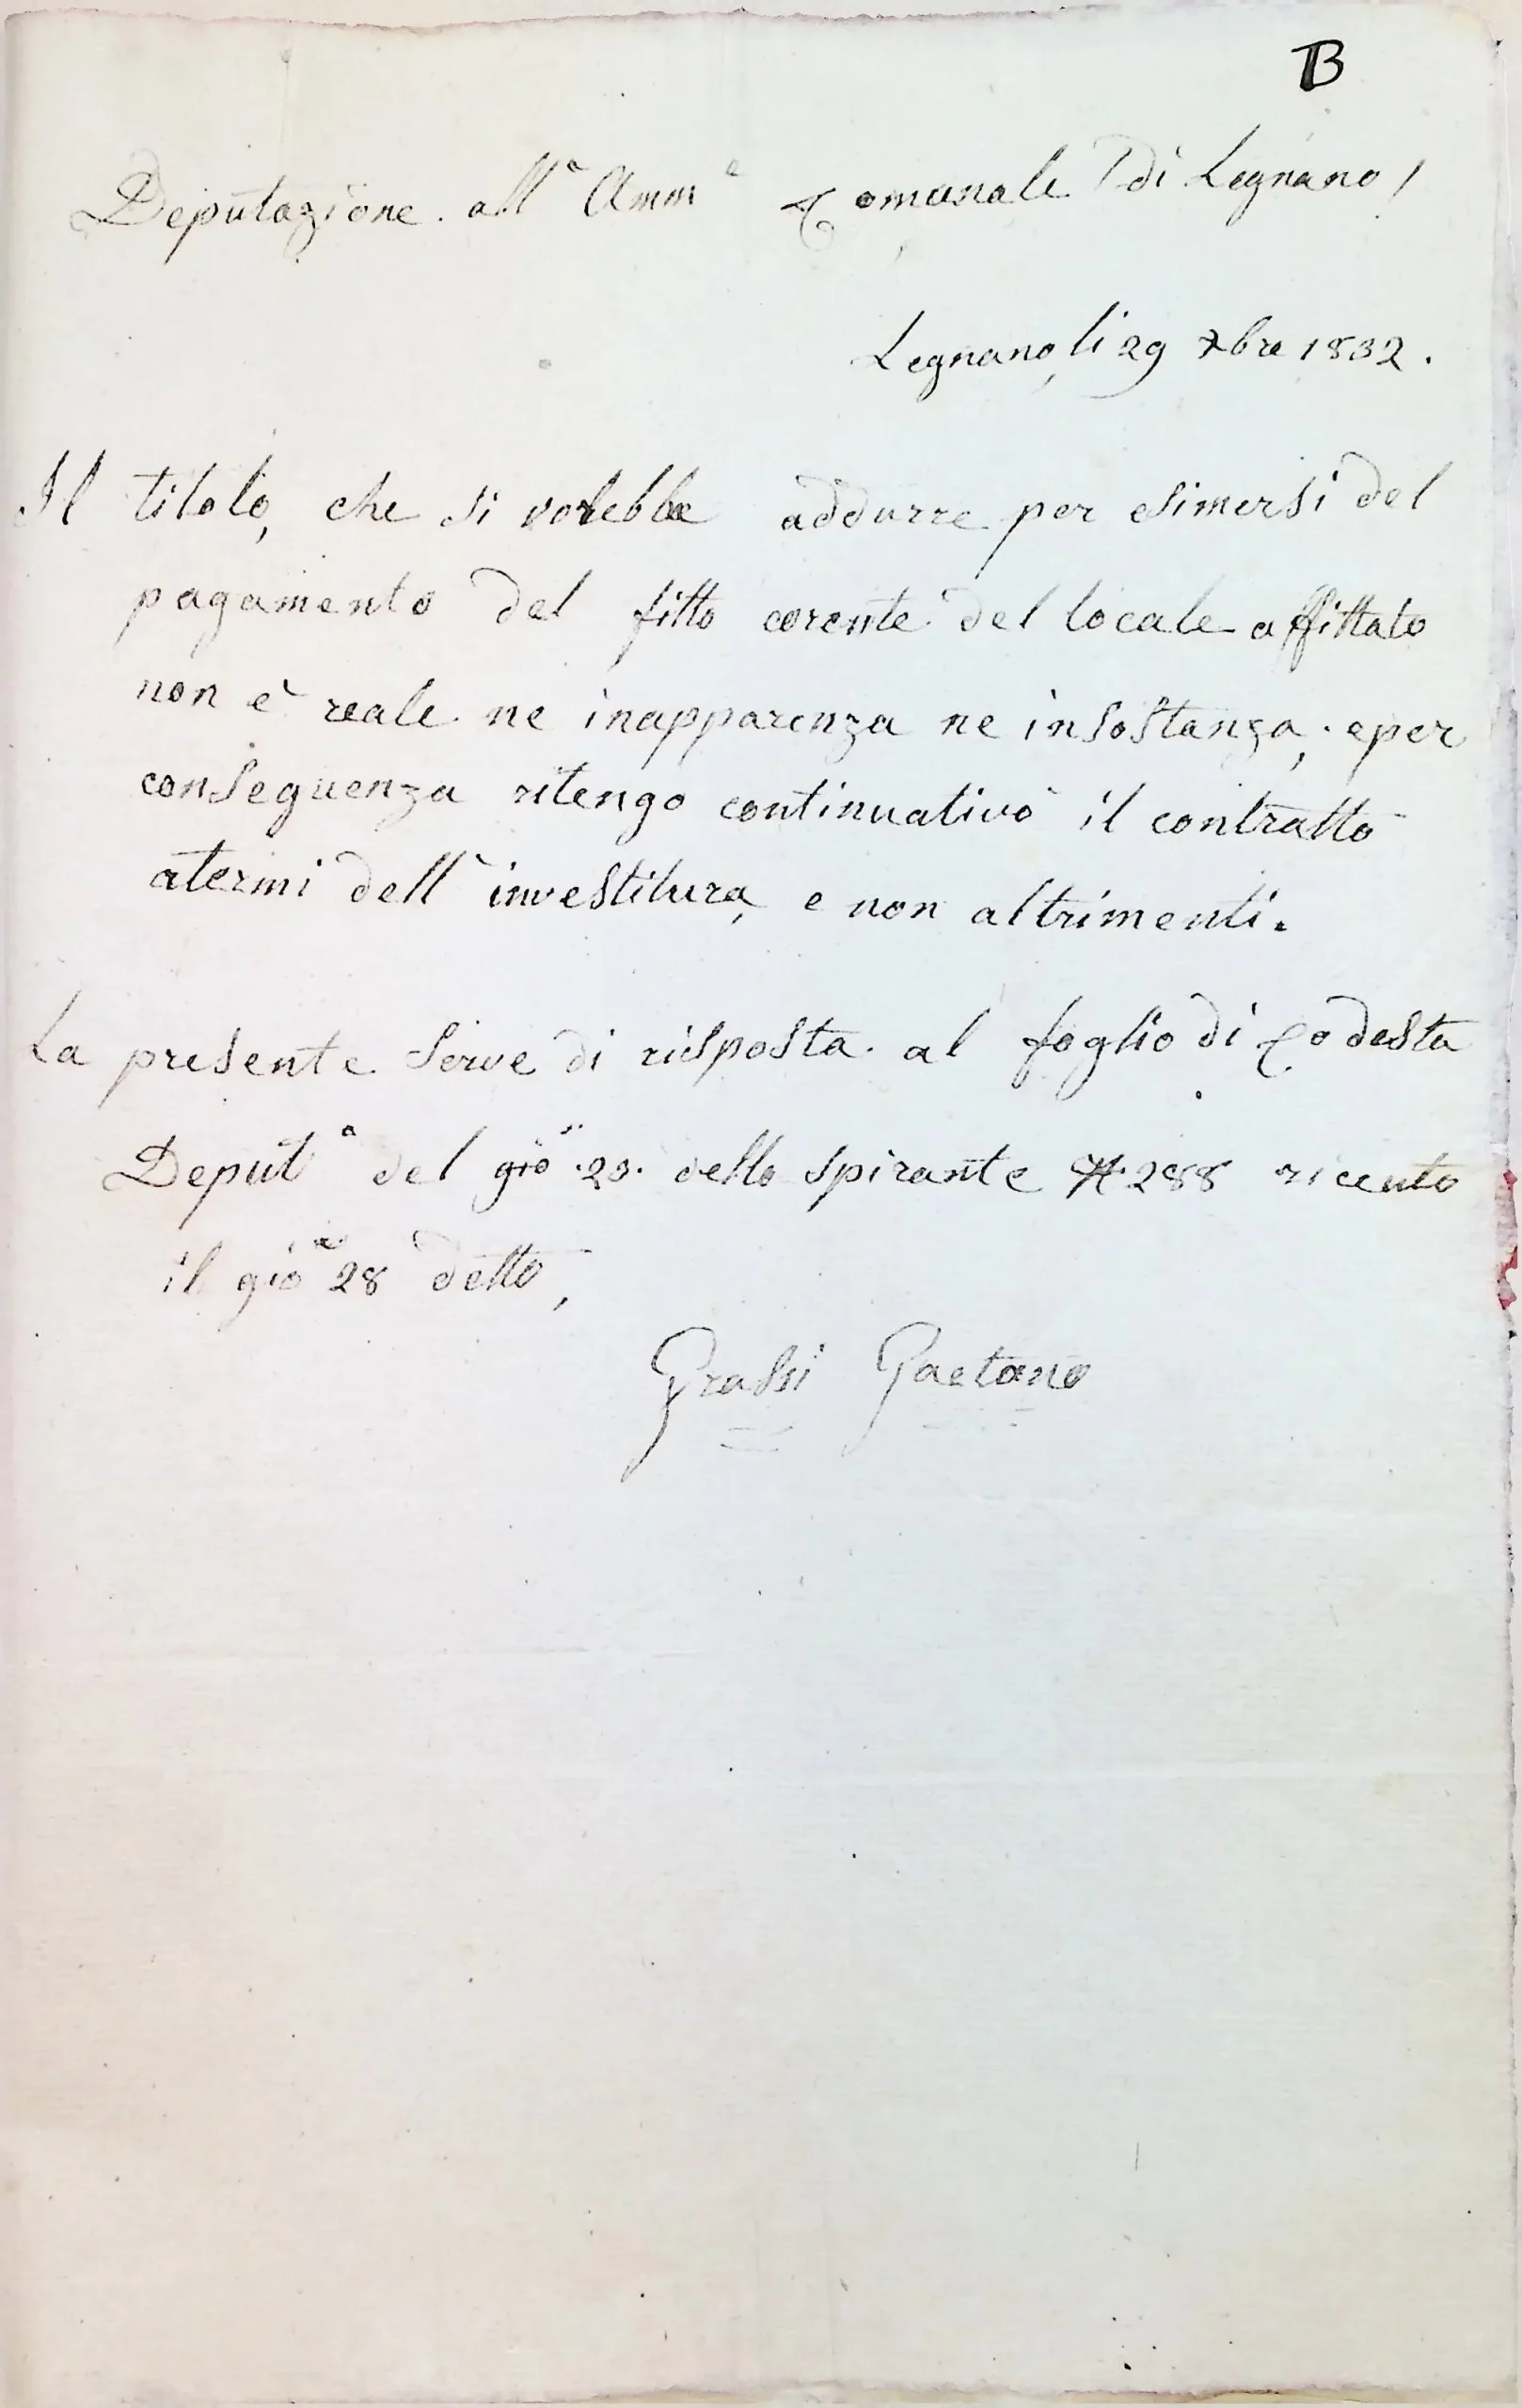 B
Deputazione all'a Amm e Comunale di Legnano!
Legnano, li 29 xbre 1832.
Il titolo, che si volebbe addurre per esimersi del
pagamento del fitto corente del locale affittato
non è reale ne inapparenza ne insostanza, eper
conseguenza ritengo continuativo il contratto
atermi dell'investitura, e non altrimenti.
La presente serve di risposta al foglio di Codesta
Deput a del gio 23. dello spirante N. 288 riceuto
il gio 28 detto,
Grassi Gaetano